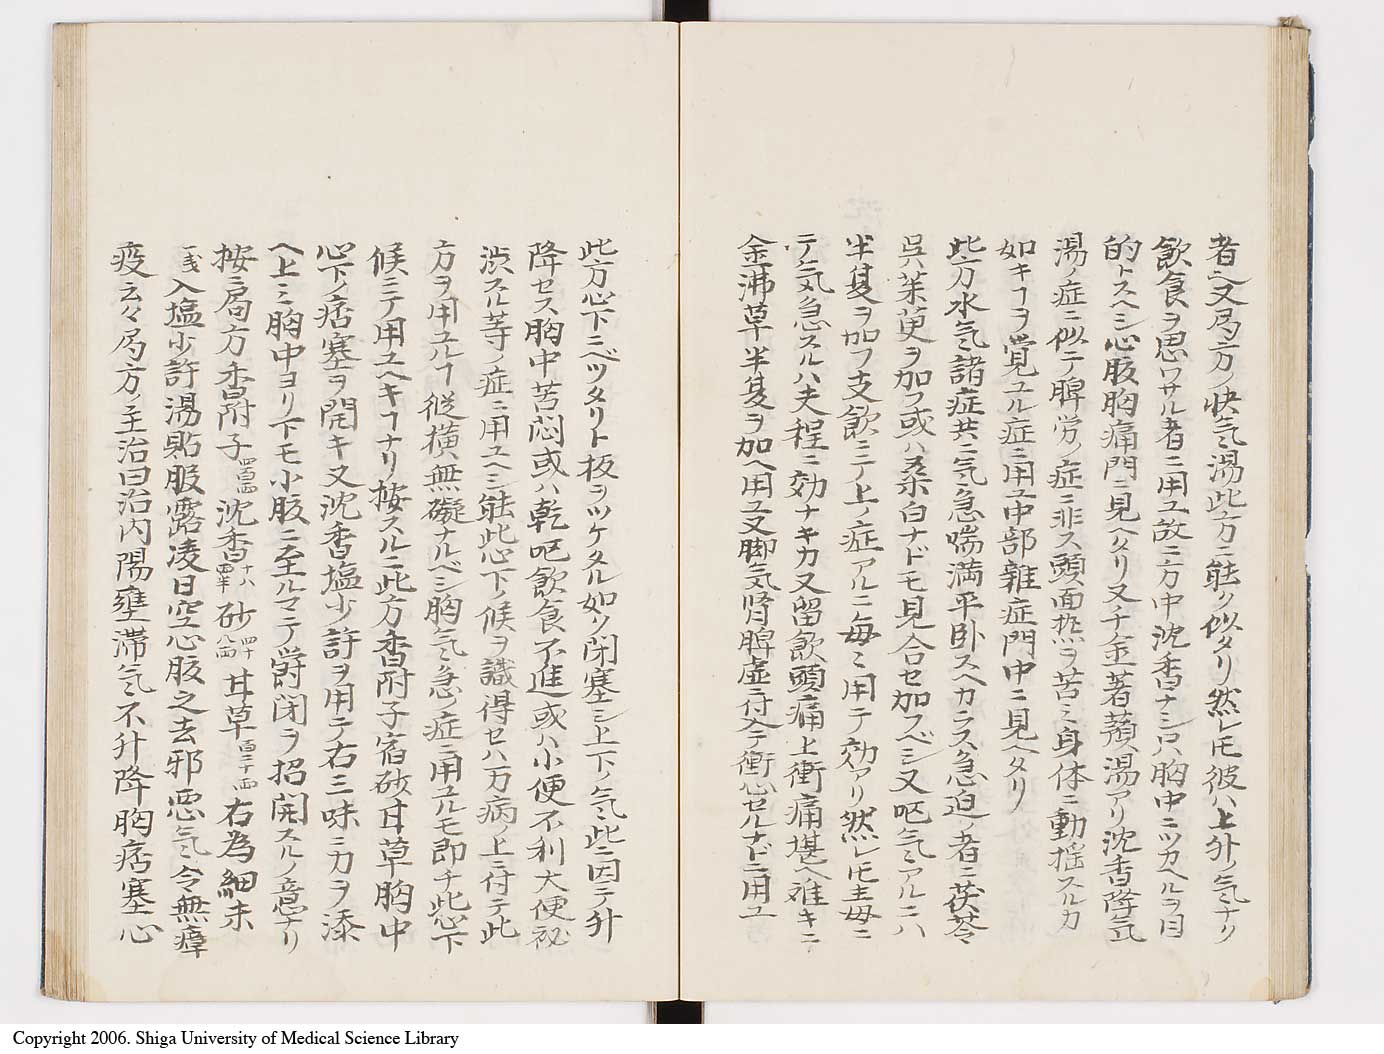 者ヘ又局方ノ快気湯此方ニ能ク似タリ然レ𪜈彼ハ上升ノ気ナク
飲食ヲ思ワサル者ニ用ユ故ニ方中沈香ナシ只胸中ニツカヘルヲ目
的トスヘシ心腹胸痛門ニ見ヘタリ又千金著蘋湯アリ沈香降気
湯ノ症ニ似テ脾労ノ症ニ非ス頭面熱ヲ苦ミ身体ニ動揺スルカ
如キヿヲ覚ユル症ニ用ユ中部雑症門中ニ見ヘタリ
此方水気諸症共ニ気急喘満平卧スヘカラス急迫ノ者ニ茯苓
呉茱萸ヲ加フ或ハ桑白ナドモ見合セ加フベシ又呕気ミアルニハ
半夏ヲ加フ支飲ニテ上ノ症アルニ毎ミ用テ効アリ然レ𪜈主毎ニ
テ気急スルハ夫程ニ効ナキカ又留飲頭痛上衝痛堪ヘ難キニ
金沸草半夏ヲ加ヘ用ユ又脚気肾脾虚ニ付入テ衝心セルナドニ用ユ
此方心下ニベツタリト板ヲツケタル如ク閉塞シ上下ノ気此ニ因テ升
降セス胸中苦悶或ハ乾呕飲食不進或ハ小便不利大便秘
渋スル等ノ症ニ用ユヘシ能此心下ノ候ヲ識得セハ万病ノ上ニ付テ此
方ヲ用ユルヿ縦横無礙ナルベシ胸気急ノ症ニ用ユルモ即チ此心下
候ニテ用ユヘキヿナリ按スルニ此方香附子宿砂甘草胸中
心下ノ痞塞ヲ開キ又沈香塩少許ヲ用テ右三味ニ力ヲ添
ヘ上ミ胸中ヨリ下モ小腹ニ至ルマテ欝閉ヲ招開スルノ意ナリ
按ニ局方香附子四百両沈香十八両半砂四十八両甘草百二十両右為細末
一戔入塩少許湯點服露凌日空心服之去邪悪気令無瘴
疫云々局方ノ主治曰治内陽壅滞気不升降胸痞塞心